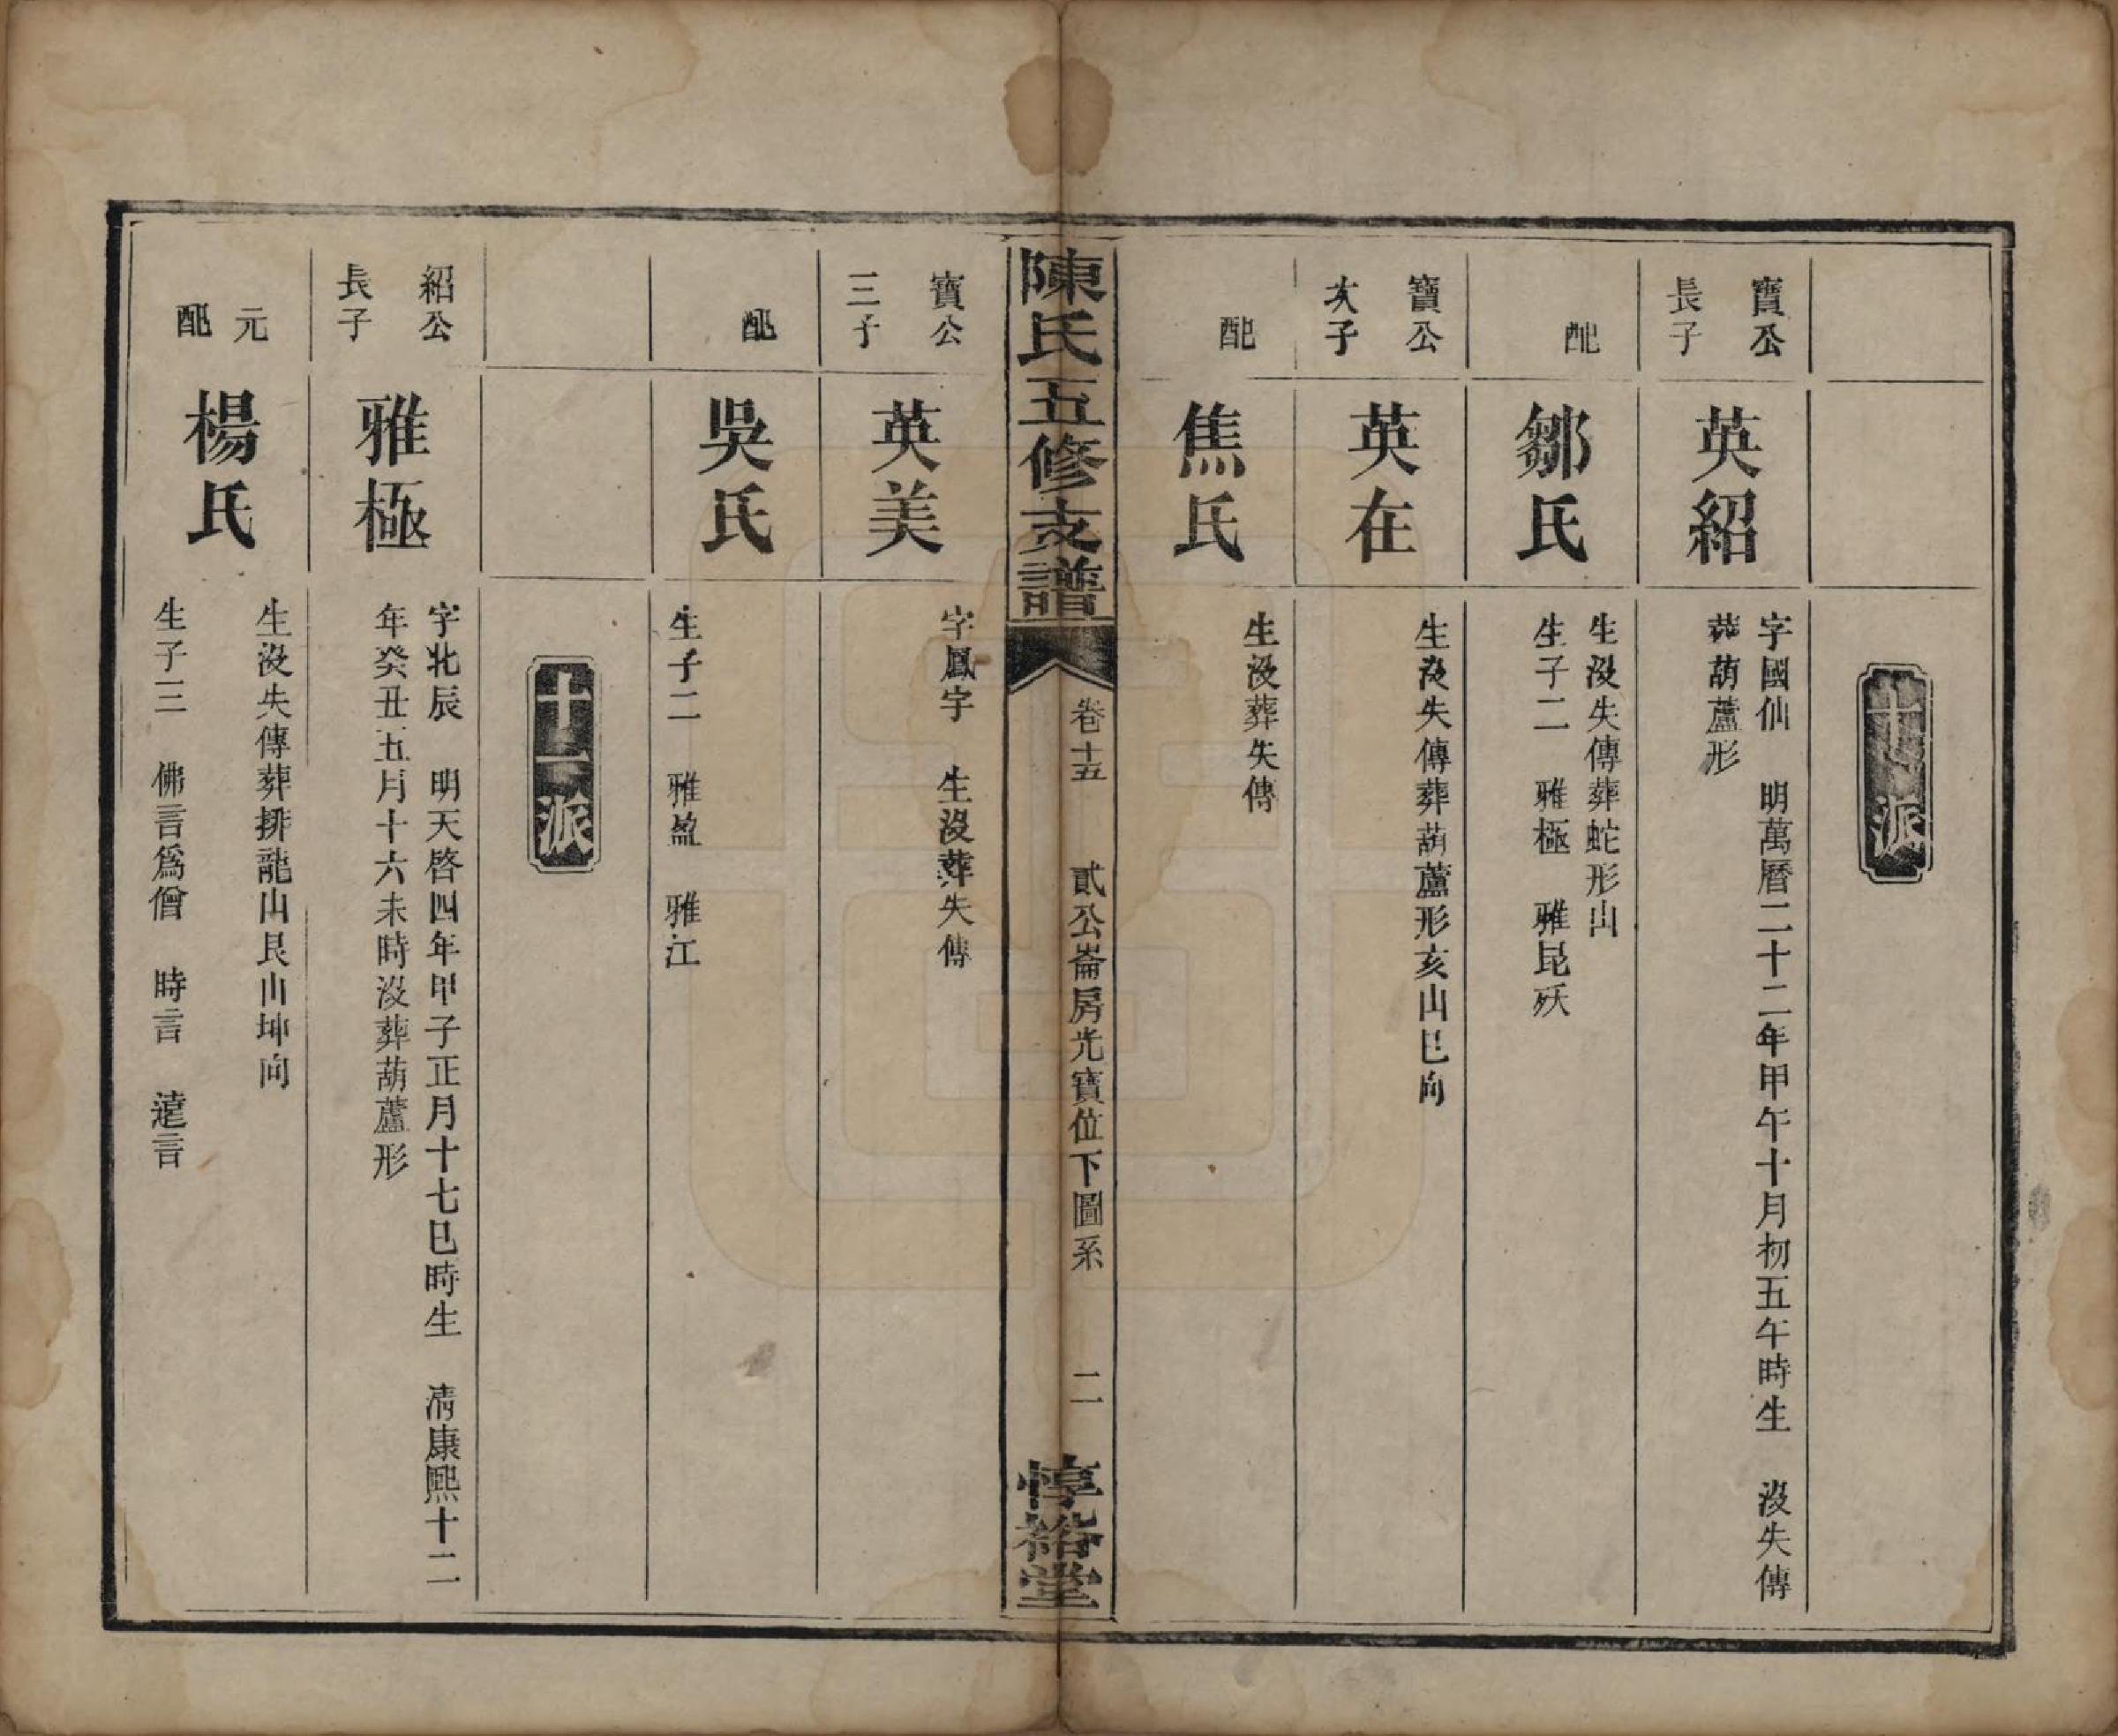 十派
寶公
長子
英紹
字國仙　明萬曆二十二年甲午十月初五午時生　沒失傳
葬葫蘆形
配
鄒氏
生沒失傳葬蛇形山
生子二　雅極　雅昆殀
寶公
次子
英在
生沒失傳葬葫蘆形亥山巳向
配
焦氏
生沒葬失傳
陳氏五修支譜
卷十五
貳公崙房光寶位下圖系
二
惇裕堂
寶公
三子
英美
字鳳宇　生沒葬失傳
配
吳氏
生子二　雅盈　雅江
十一派
紹公
長子
雅極
字北辰　明天啓四年甲子正月十七巳時生　清康熙十二
年癸丑五月十六未時沒葬葫蘆形
元
配
楊氏
生沒失傳葬排龍山艮山坤向
生子三　佛言爲僧　時言　達言